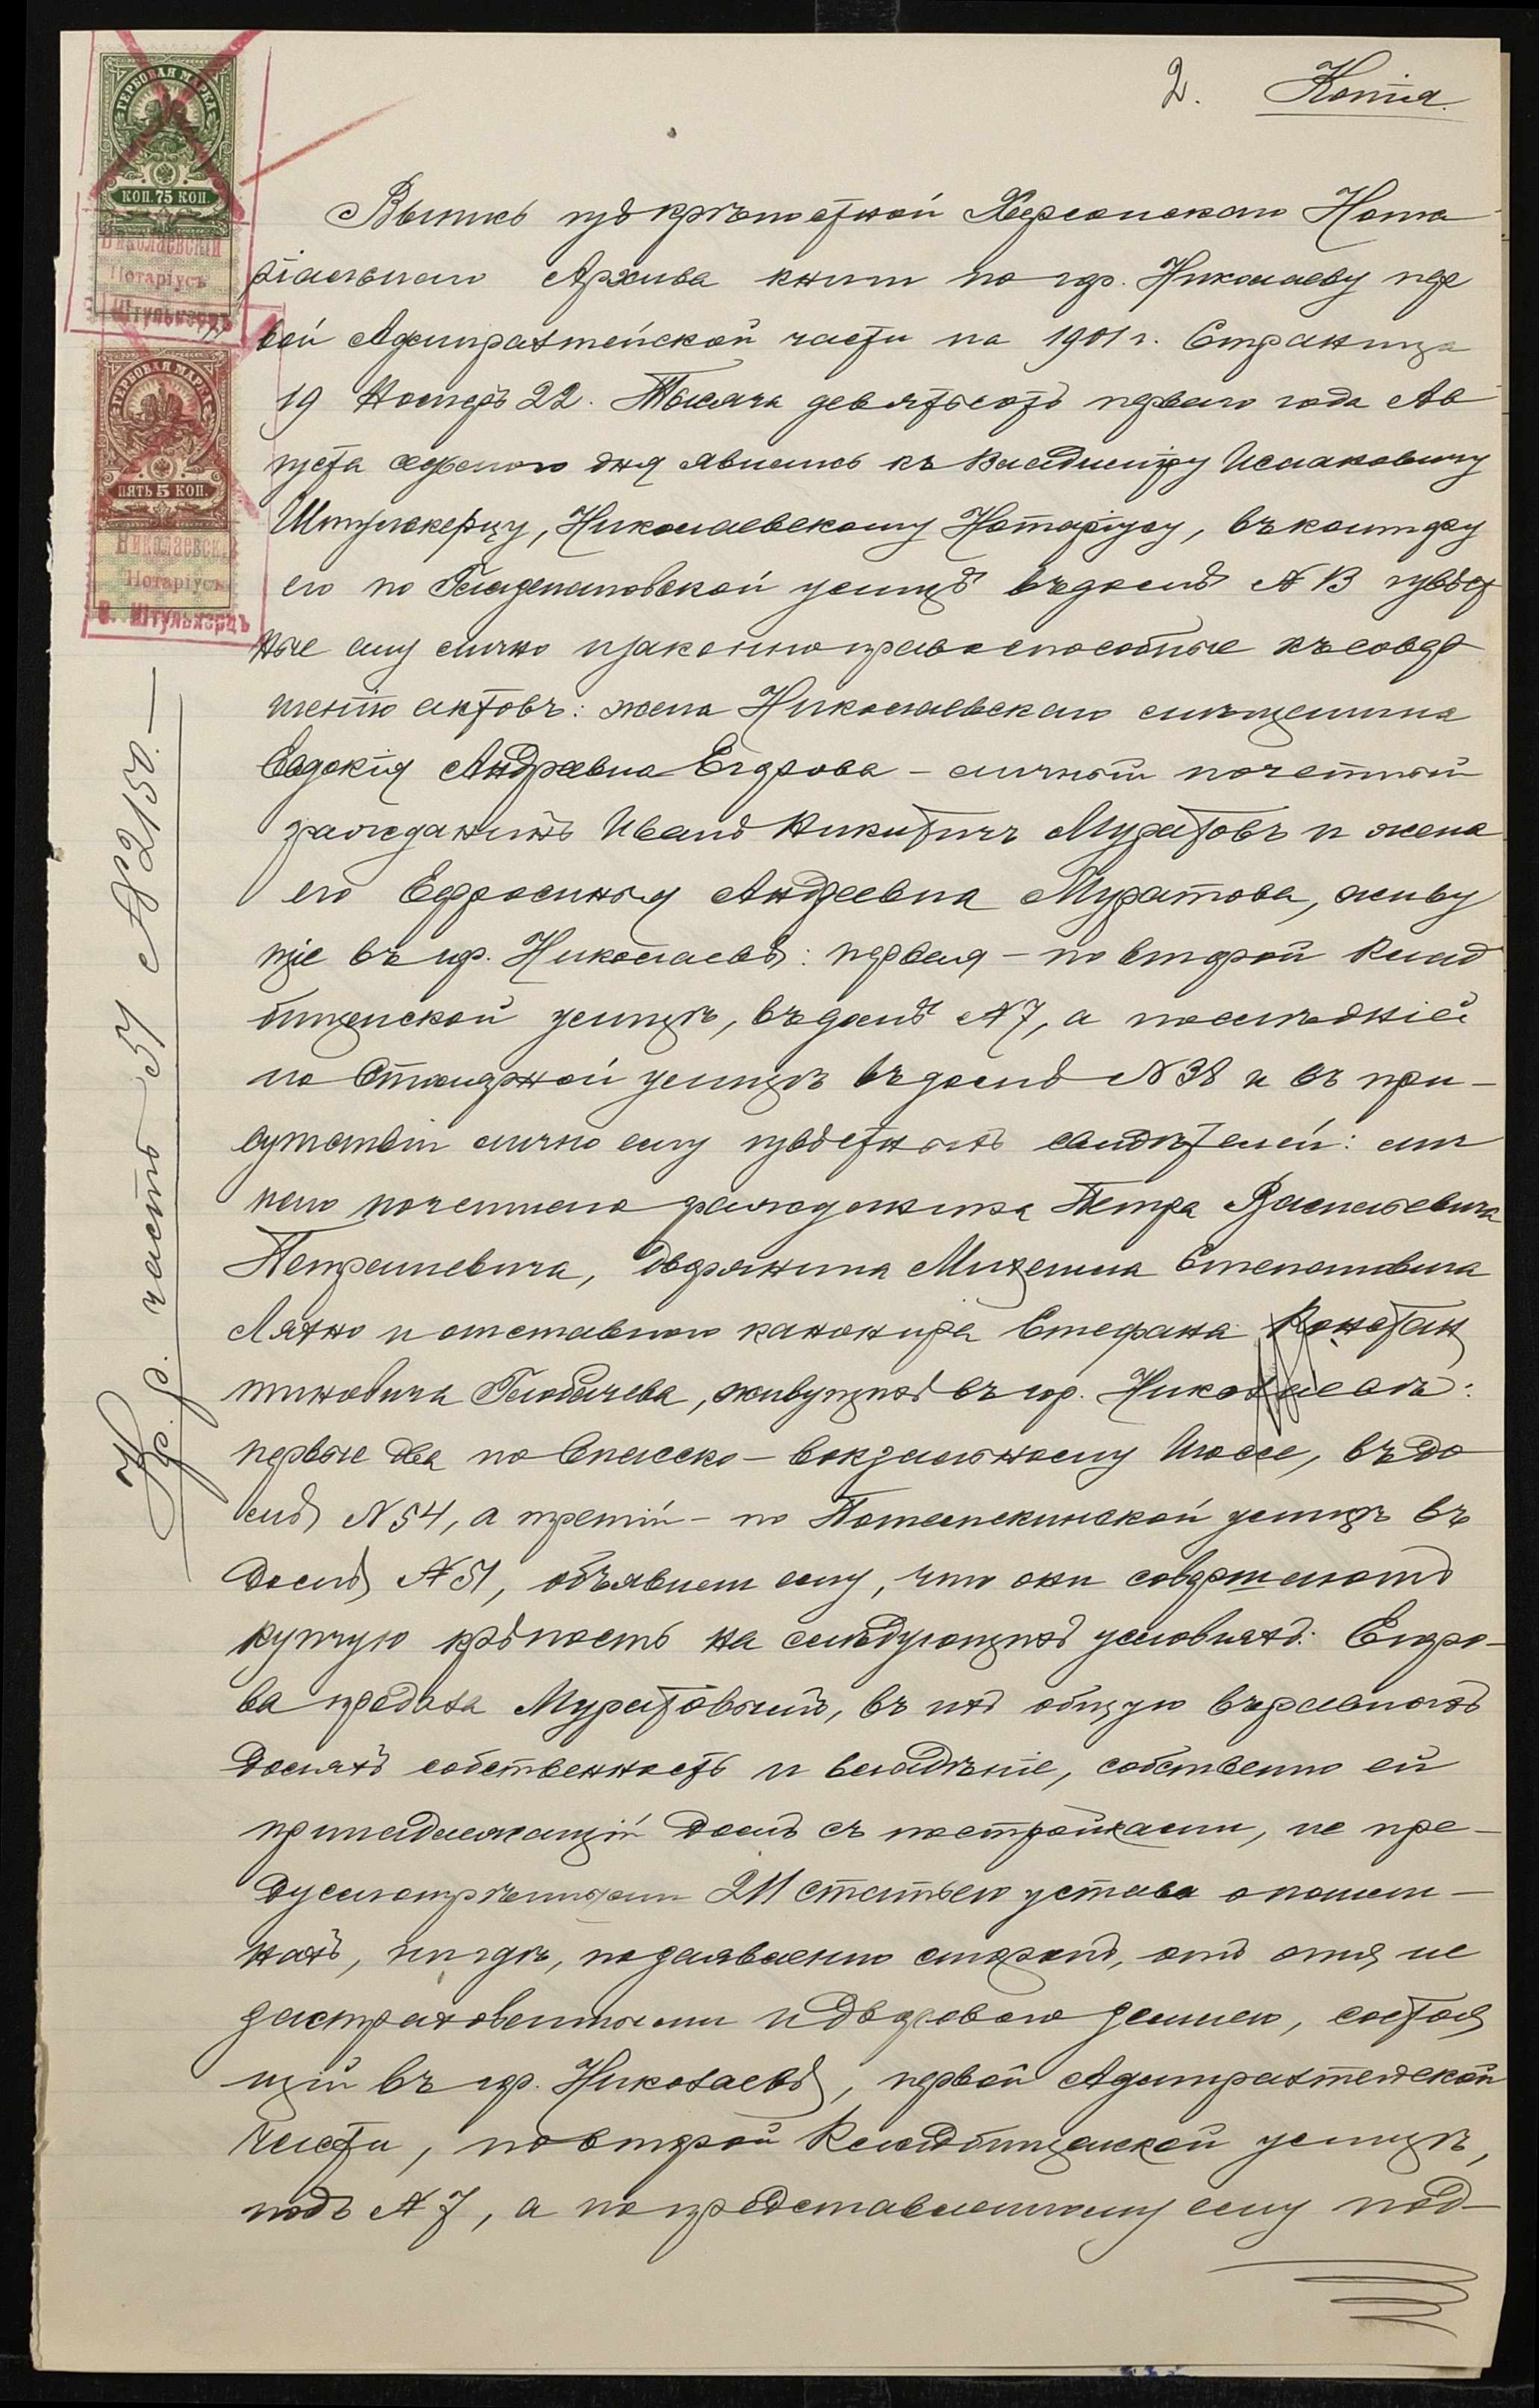 2. Копія.
ГЕРБОВАЯ МАРКА
КОП. 75 КОП.
Николаевскій
Нотаріусъ
Штулькерцъ
ГЕРБОВАЯ МАРКА
ПЯТЬ 5 КОП.
Николаевскі
Нотаріусъ
В. Штулькерцъ
Выпись изъ крѣпостной Херсонскаго Нота
ріальнаго Архива книги по гор. Николаеву пер
вой Адмиралтейской части на 1901 г. Страница
19 Номеръ 22. Тысяча девятьсотъ перваго года Ав
густа седьмого дня явились къ Владиміру Исааковичу
Штулькерцу, Николаевскому Нотаріусу, въ контору
его по Глазенаповской улицѣ въ домѣ № 13 извѣст
ные ему лично и законно правоспособные къ совер
шенію актовъ: жена Николаевскаго мѣщанина
Евдокія Андреевна Егорова – личный почетный
гражданинъ Иванъ Никитичъ Муратовъ и жена
его Ефросинья Андреевна Муратова, живу
щіе въ гор. Николаевѣ: первая – по второй Клад
бищенской улицѣ, въ домѣ № 7, а послѣдніе
по Столярной улицѣ въ домѣ № 38 и въ при–
сутствіи лично ему извѣстныхъ свидѣтелей: лич
наго почетнаго гражданина Петра Васильевича
Петрашевича, дворянина Михаила Степановича
Ляхно и отставного канонира Стефана Констан
тиновича Глобачева, живущихъ въ гор. Николаевѣ:
первые два по Спасско–вокзальному Шоссе, въ до
мѣ № 54, а третій – по Потемкинской улицѣ въ
домѣ № 51, объявили ему, что они совершаютъ
купчую крѣпость на слѣдующихъ условіяхъ: Егоро–
ва продала Муратовымъ, въ ихъ общую въ равныхъ
доляхъ собственность и владѣніе, собственно ей
принадлежащій домъ съ постройками, не пре–
дусмотрѣнными 211 статьею устава о пошли–
нахъ, нигдѣ, по заявленію сторонъ, отъ огня не
застрахованными и дворовою землею, состоя
щій въ гор. Николаевѣ, первой Адмиралтейской
части, по второй Кладбищенской улицѣ,
подъ № 7, а по представленному ему под–
Кр. р. часть 51 № 2150. —